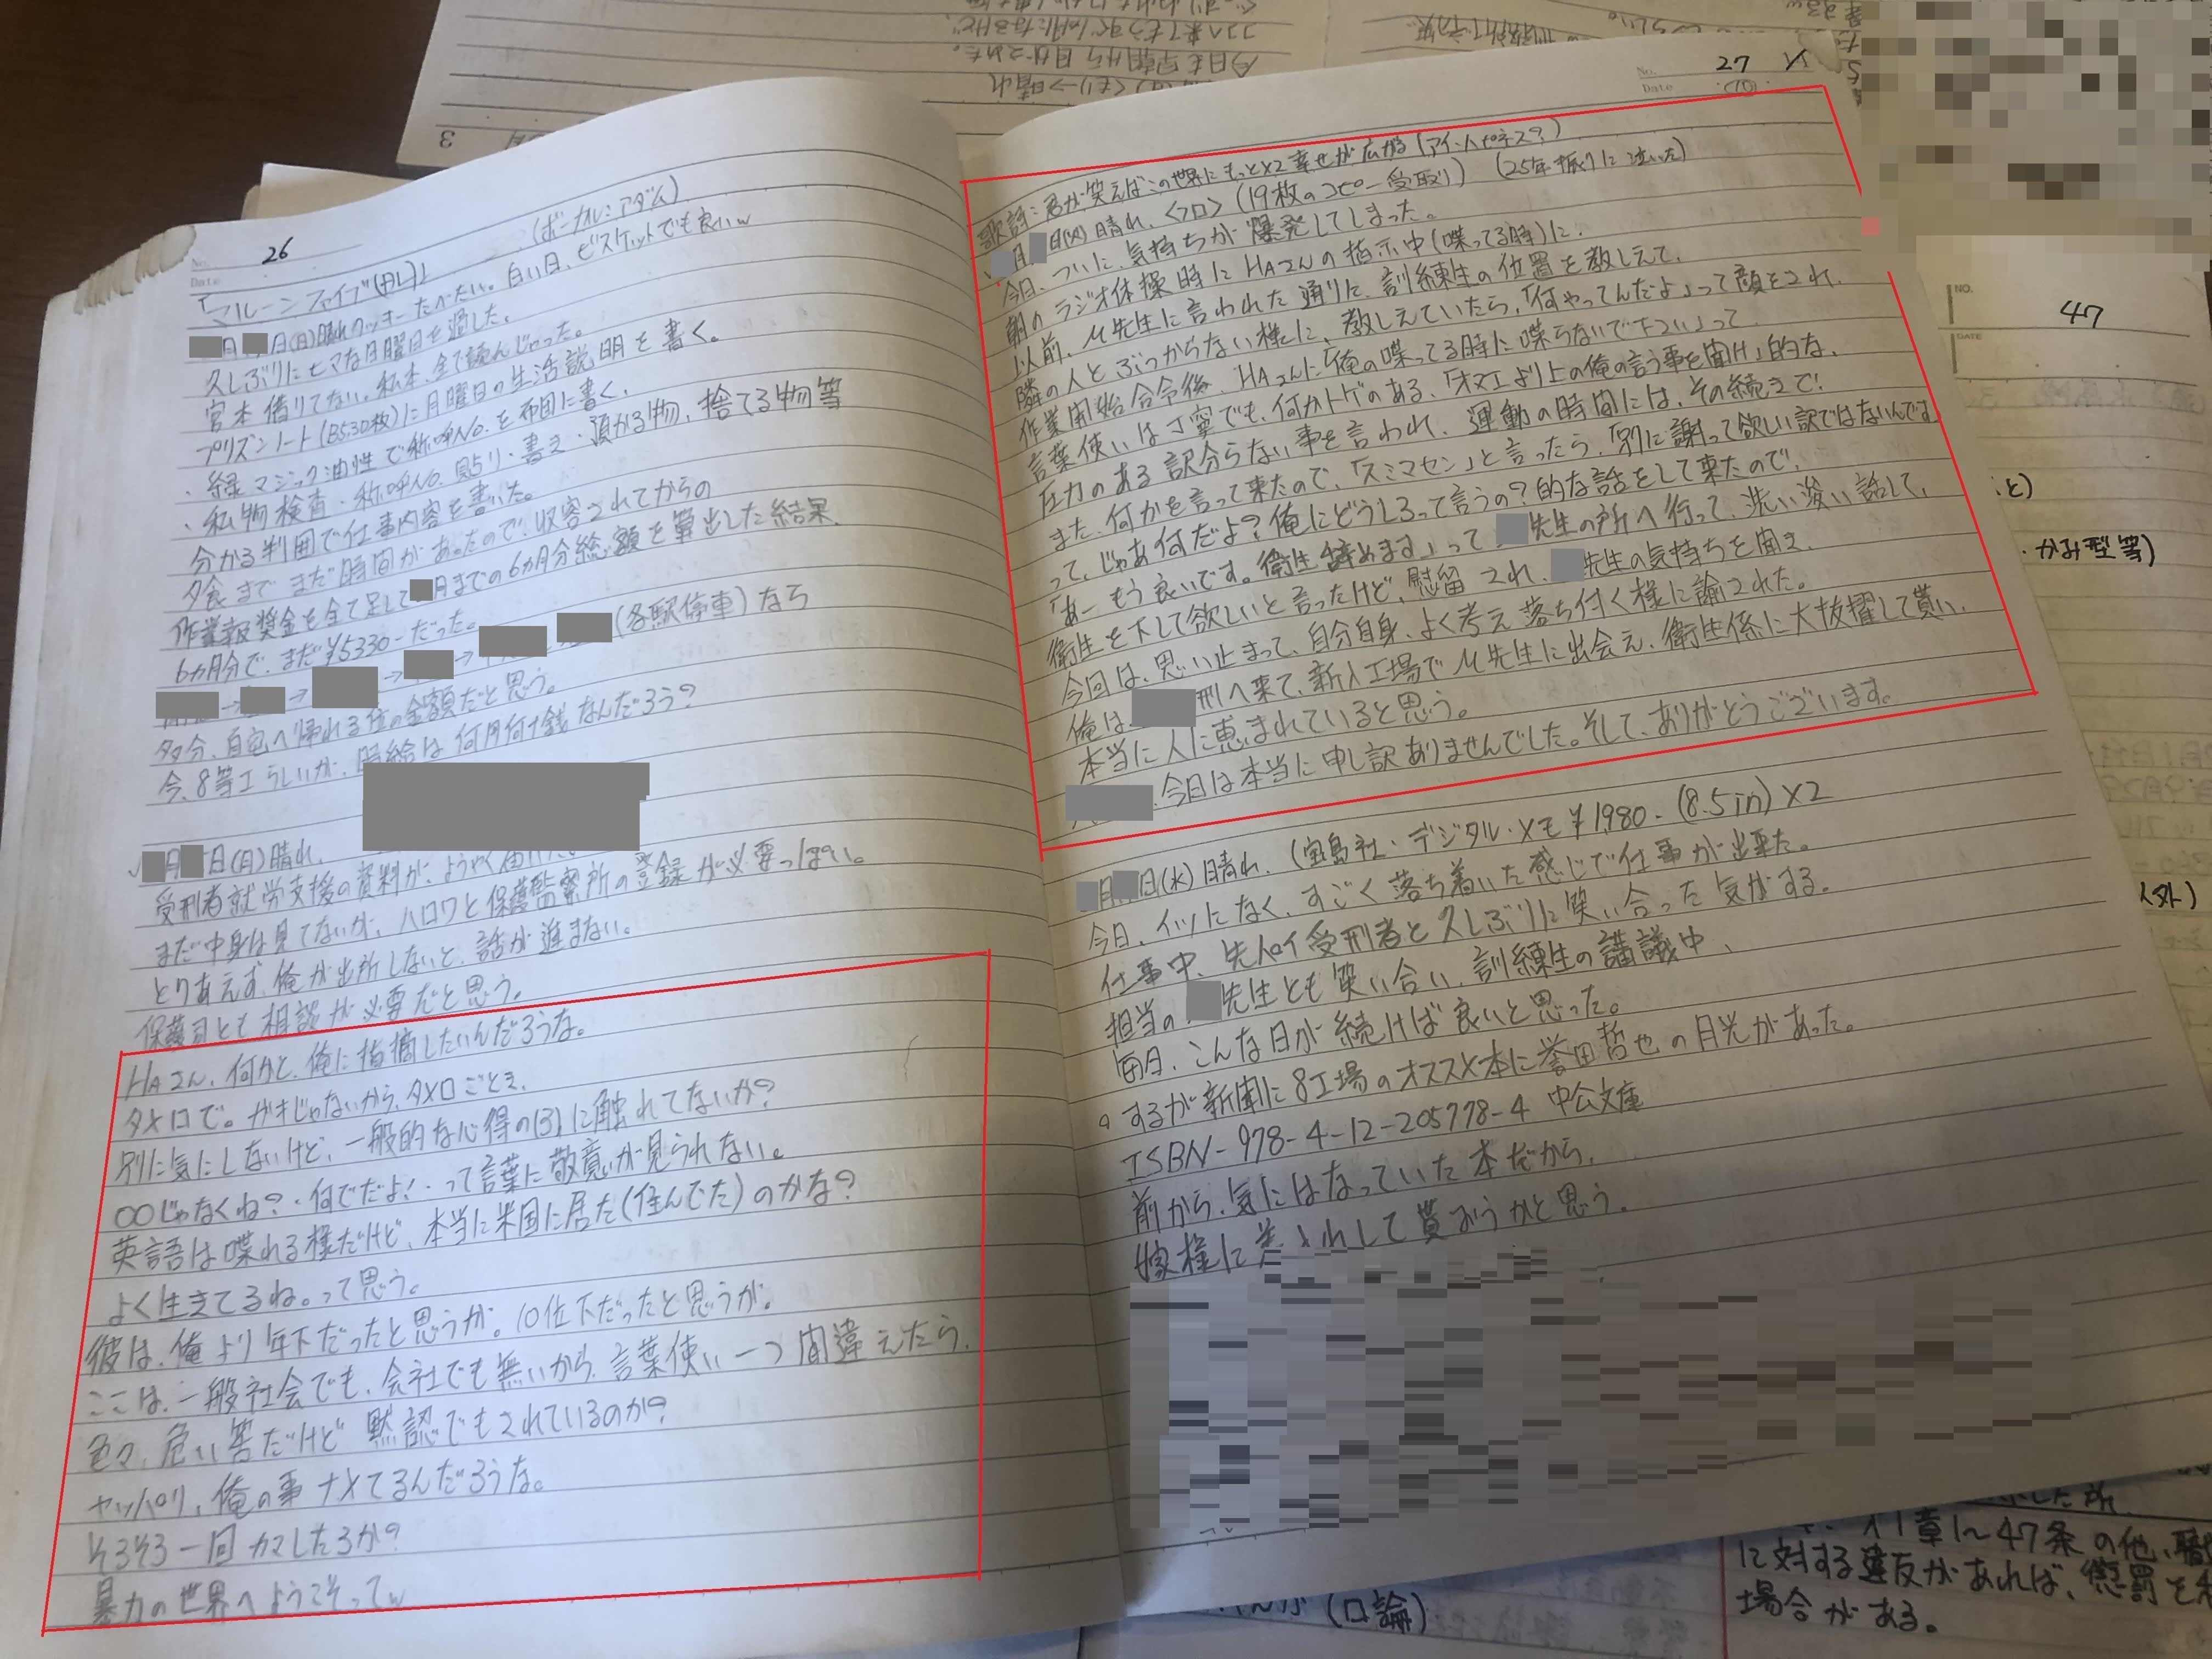 26
「マルーンファイブ(推し)」 (ボーカル:アダム)
月 日(日)晴れクッキーたべたい。白い日、ビスケットでも良いw
久しぶりにヒマな日曜日を過した。
官本借りてない。私本、全て読んじゃった。
プリズンノート(B530枚)に月曜日の生活説明を書く。
・緑マジック油性で称呼No.を布団に書く。
・私物検査・称呼No.貼り・書き・預かる物、捨てる物等
分かる判囲で仕事内容を書いた。
夕食までまだ時間があったので、収容されてからの
作業報奨金を全て足して 月までの6カ月分総額を算出した結果、
6カ月分で、まだ¥5330-だった。
→ → → → (各駅停車)なら
多分、自宅へ帰れる位の金額だと思う。
今、8等工らしいが、時給は何円何十銭なんだろう?
✓ 月 日(月)晴れ、
受刑者就労支援の資料が、ようやく届けた。
まだ中身は見てないが、ハロワと保護監察所の登録が必要っぽい。
とりあえず、俺が出所しないと、話が進まない。
保護司とも相談が必要だと思う。
HAさん、何かと、俺に指摘したいんだろうな。
タメ口で。ガキじゃないから、タメ口ごとき、
別に気にしないけど、一般的な心得の(3)に触れてないか?
○○じゃなくね?・何でだよ!・って言葉に敬意が見られない。
英語は喋れる様だけど、本当に米国に居た(住んでた)のかな?
よく生きてるね。って思う。
彼は、俺より年下だったと思うが。10位下だったと思うが。
ここは、一般社会でも、会社でも無いから、言葉使い一つ間違えたら、
色々、危い筈だけど黙認でもされているのか?
ヤッパリ、俺の事ナメてるんだろうな。
そろそろ一回カマしたろか?
暴力の世界へようこそってw
27
(70)
歌詞:君が笑えばこの世界にもっと×2幸せが広がる(アイ-ハピネス?)
✓ 月 日(火)晴れ、<フロ>(19枚のコピー受取り) (25年振りに泣いた)
今日、ついに、気持ちが爆発してしまった。
朝のラジオ体操時にHAさんの指示中(喋ってる時)に、
以前、M先生に言われた通りに、訓練生の位置を教しえて、
隣の人とぶつからない様に、教しえていたら、「何やってんだよ」って顔をされ、
作業開始合令後、HAさんに「俺の喋ってる時に喋らないで下さい」って
言葉使いは丁寧でも、何かトゲのある、「オマエより上の俺の言う事を聞け」的な、
圧力のある訳分らない事を言われ、運動の時間には、その続きで!
また、何かを言って来たので、「スミマセン」と言ったら、「別に謝って欲しい訳ではないんです
って、じゃあ何だよ?俺にどうしろって言うの?的な話をして来たので、
「あーもう良いです。衛生辞めます」って 先生の所へ行って、洗い浚い話して、
衛生を下して欲しいと言ったけど、慰留され、 先生の気持ちを聞き、
今回は、思い止まって、自分自身、よく考え落ち付く様に諭された。
俺は 刑へ来て、新人工場でM先生に出会え、衛生係に大抜擢して貰い、
本当に人に恵まれていると思う。
、今日は本当に申し訳ありませんでした。そして、ありがとうございます。
月 日(水)晴れ、(宝島社・デジタル・メモ¥1,980-(8.5in)×2
今日、イツになく、すごく落ち着いた感じで仕事が出来た。
仕事中、先人の受刑者と久しぶりに笑い合った気がする。
担当の 先生とも笑い合い、訓練生の講議中、
毎日、こんな日が続けば良いと思った。
。するが新聞に8工場のオススメ本に誉田哲也の月光があった。
ISBN-978-4-12-205778-4 中公文庫
前から、気にはなっていた本だから、
嫁様に差入れして貰おうかと思う。
47
・かみ型等)
(口論)
章1~47条の他、
に対する違反があれば、懲罰を
場合がある。
3
今日も早朝から目がさめた。